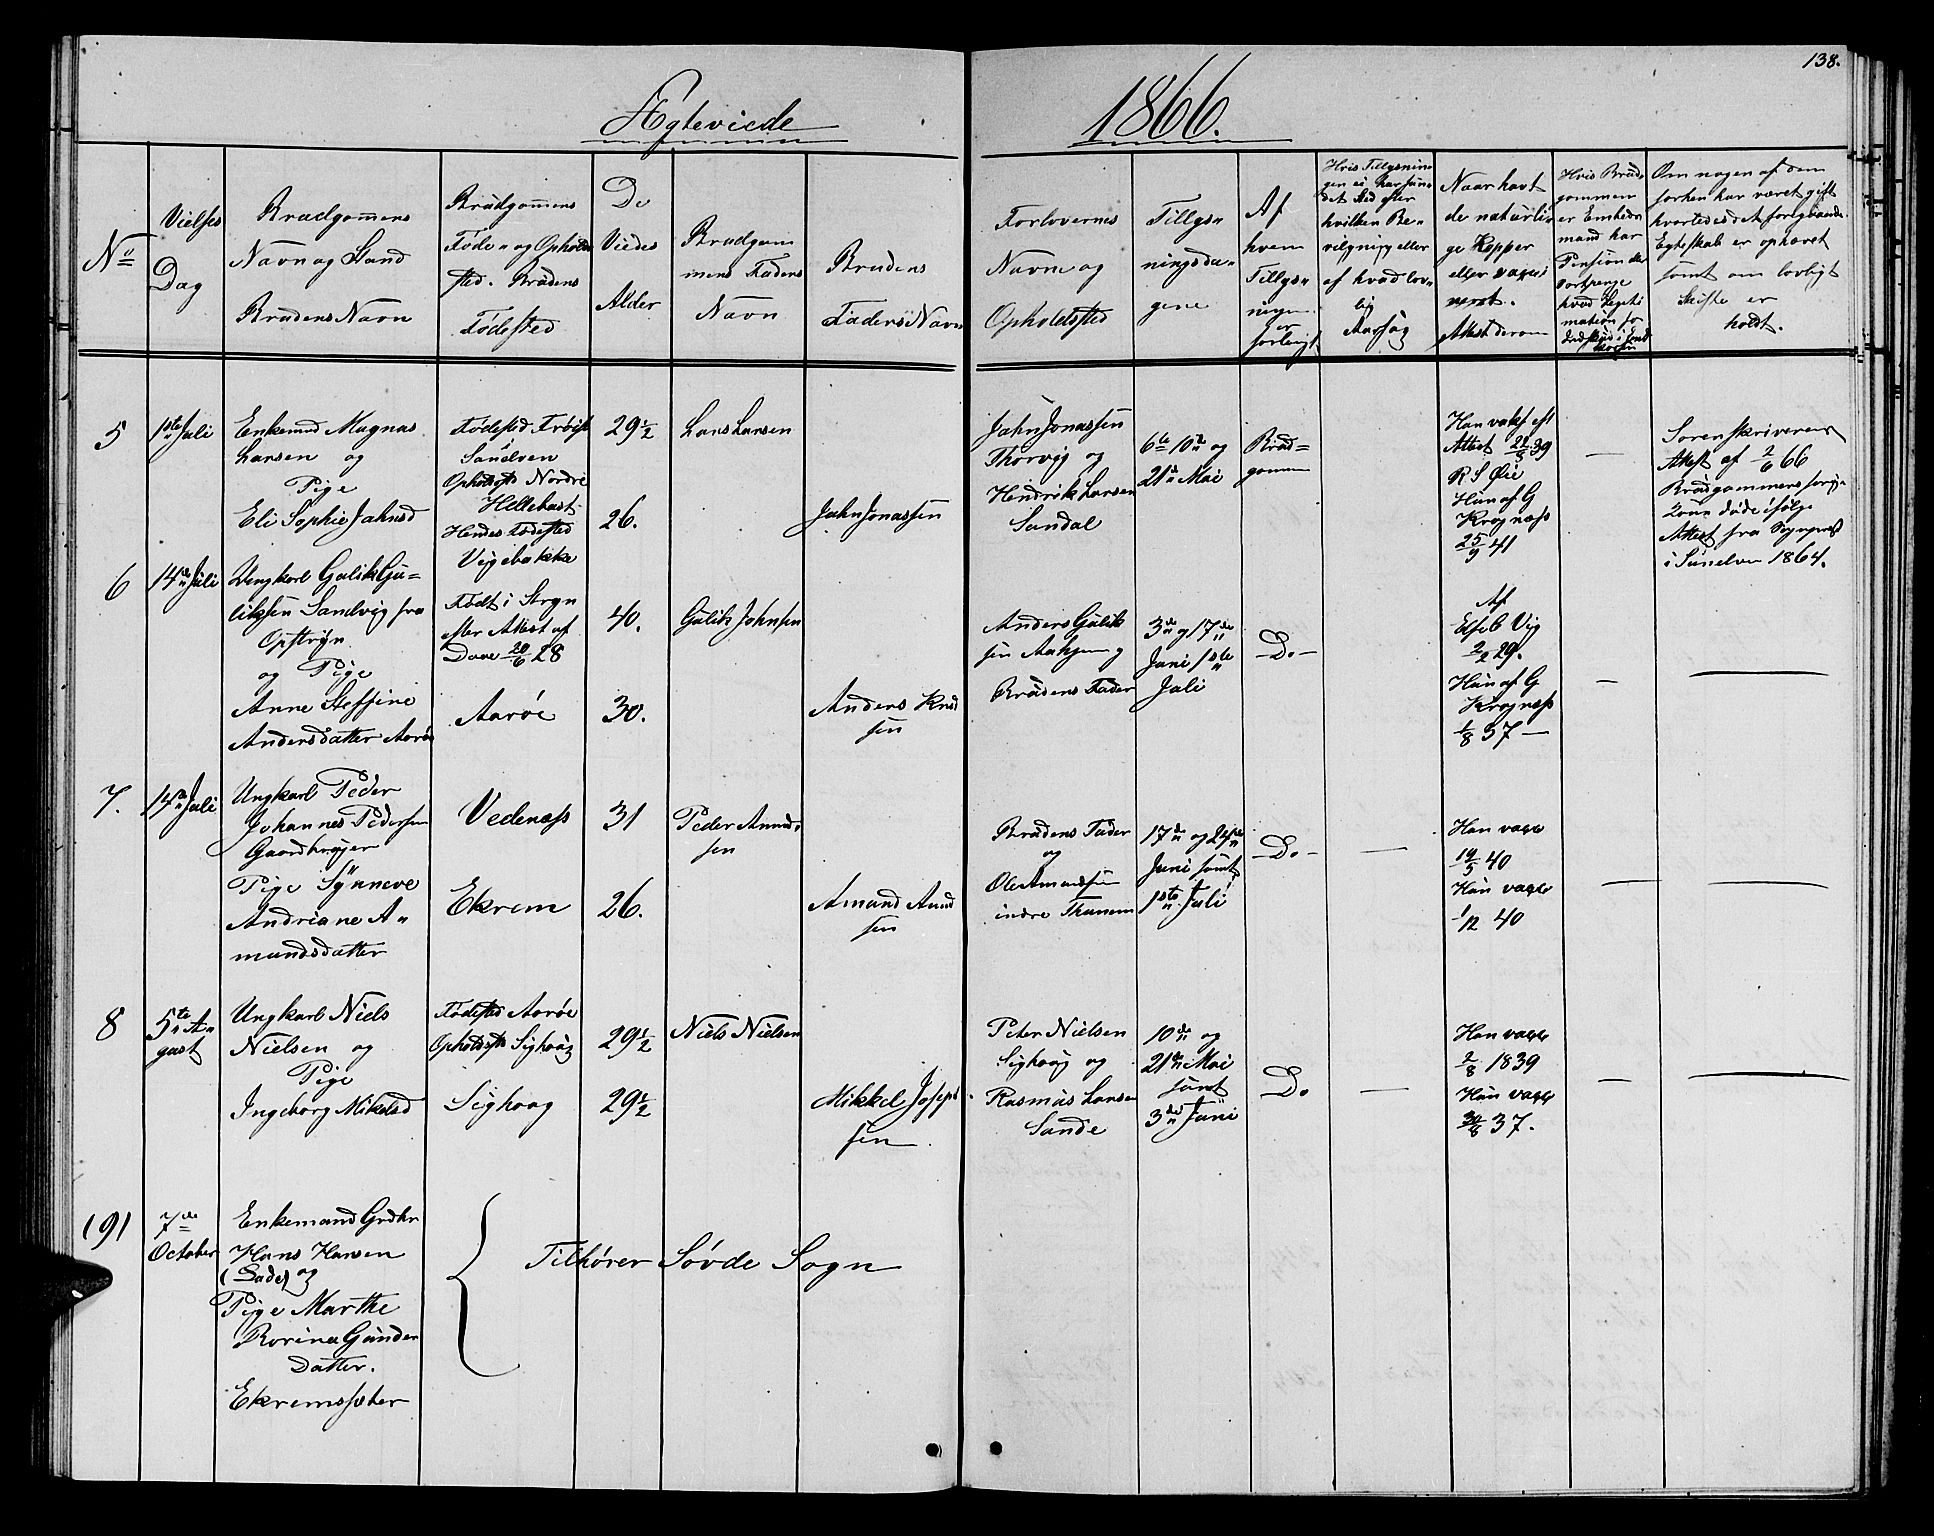 138.
Ægteviede
1866.
No
Vielses
Dag
Brudgommens
Navn og Stand
Brudens Navn
Brudgommens
Føde- og Opholds
sted. Brudens
Fødested
De
Viedes
Alder
Brudgom
mens Faders
Navn
Brudens
Faders Navn
Forlovernes
Navne og
Opholdsted
Tillys-
ningsda-
gene
Af
hvem
Tillys-
ningen
er
forlangt
Hvis Tillysnin-
gen ei har fun-
det Sted efter
hvilken Be-
vilgning eller
af hvad lov-
lig
Aarsag
Naar havt
de naturli-
ge Kopper
eller vacci-
neret.
Attest derom
Hvis Brud-
gommen
er Enkeds
mand har
Pension der
hvad Legiti
mation for
Om nogen af dem
forhen har været gift
hvorledes det foregaaende
Egteskab er ophævet
samt om lovligt
Skifte er
holdt.
5
1ste Juli
Enkemd Magnus
Larsen og
Pige
Eli Sophie Jahnsd
Fødested
Sundven
Opholdsst Nordre
Hellebast
Hendes Fødested
Vigebakke
29½
26.
Lars Larsen
Jahn Jonassen
Jahn Jonassen
Thorvig og
Hendrik Larsen
Sandal
6te 10de og
21de Mai
Brud=
gommen
Han vakc eft
Attest 22/5 39
R S Øie
Hun af G
Krognæss
25/9 41
—
Sorenskriverens
Attest af 2/6 66
Brudgommens forrige
Kone døde ifølge
Attest fra Sognepræst
i Sundven 1864.
6
14de Juli
Ungkarl Gulik Gu-
liksen Sandvig fra
Opstryn
og Pige
Anne Steffine
Andersdatter Aarøe
Født i Stryn
efter Attest af
Dave 20/6 28
Aarøe
40.
30.
Gulik Johnsen
Anders Knud
sen
Anders Gulik
sen Aahjem og
Brudens Fader
3de og 17de
Juni 1ste
Juli
—Do—
Af
Elseb Vig
2/2 29.
Hun af G
Krognæss
1/8 37 —
—
—
7.
14de Juli
Ungkarl Peder
Johannes Pedersen
Gaardbruger
Pige Synneve
Andriane A-
mundsdatter
Vedenæss
Ekrem
31
26.
Peder Amund-
sen
Amund Amd
sen
Brudens Fader
og
Ole Amundsen
indre Thunem
17de og 24de
Juni samt
1ste Juli
—Do—
—
Han vacc
14/5 40
Hun vacc
1/12 40
—
—
8
5te A-
gust
Ungkarl Niels
Nielsen og
Pige
Ingeborg Mikelsd
Fødested Aarøe
Opholdsst Sighoug
Sighoug
29½
29½
Niels Nielsen
Mikkel Joseps
sen
Peter Nielsen
Sighoug og
Rasmus Larsen
Sande
10de og
21de Mai
samt
3die Juni
Do
—
Han vacc
2/8 1839
Hun vacc
30/8 37.
—
—
(9)
7de
October
Enkemand Grdbr
Hans Hansen
(Sade) og
Pige Marthe
Rorine Gunder
Datter.
Ekremssæter
Tilhører Søvde Sogn